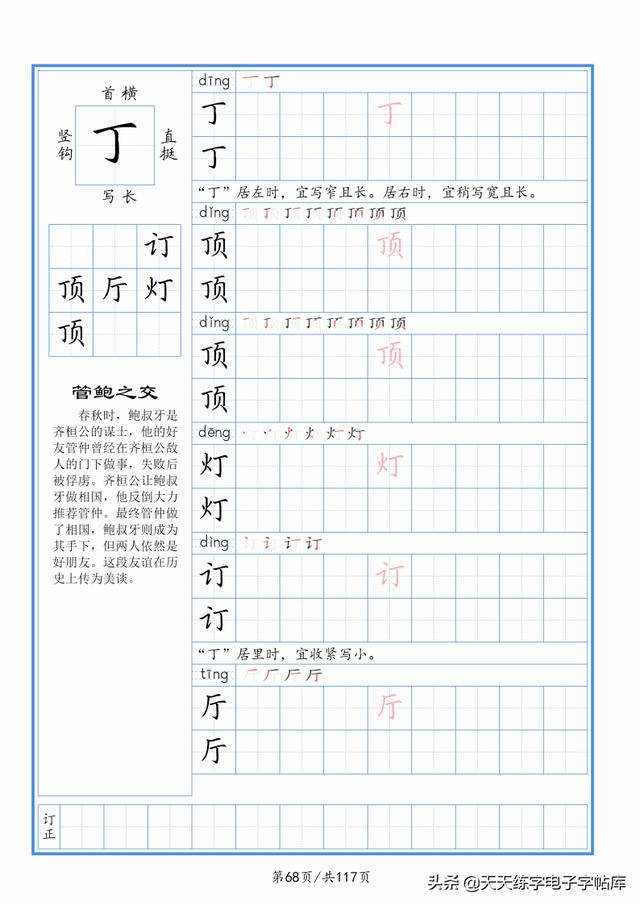 首横
竖钩
丁
直挺
写长
订
顶厅灯
顶
管鲍之交
春秋时，鲍叔牙是
齐桓公的谋士，他的好
友管仲曾经在齐桓公敌
人的门下做事，失败后
被俘虏。齐桓公让鲍叔
牙做相国，他反倒大力
推荐管仲。最终管仲做
了相国，鲍叔牙则成为
其手下，但两人依然是
好朋友。这段友谊在历
史上传为美谈。
dīng 丁丁
丁 丁
丁
“丁”居左时，宜写窄且长。居右时，宜稍写宽且长。
dǐng 顶顶顶顶顶顶顶顶
顶 顶
顶
dǐng 顶顶顶顶顶顶顶顶
顶 顶
顶
dēng 灯灯灯灯灯灯
灯 灯
灯
dìng 订订订订
订 订
订
“丁”居里时，宜收紧写小。
tīng 厅厅厅厅
厅 厅
厅
订正
第68页/共117页
头条 @天天练字电子字帖库